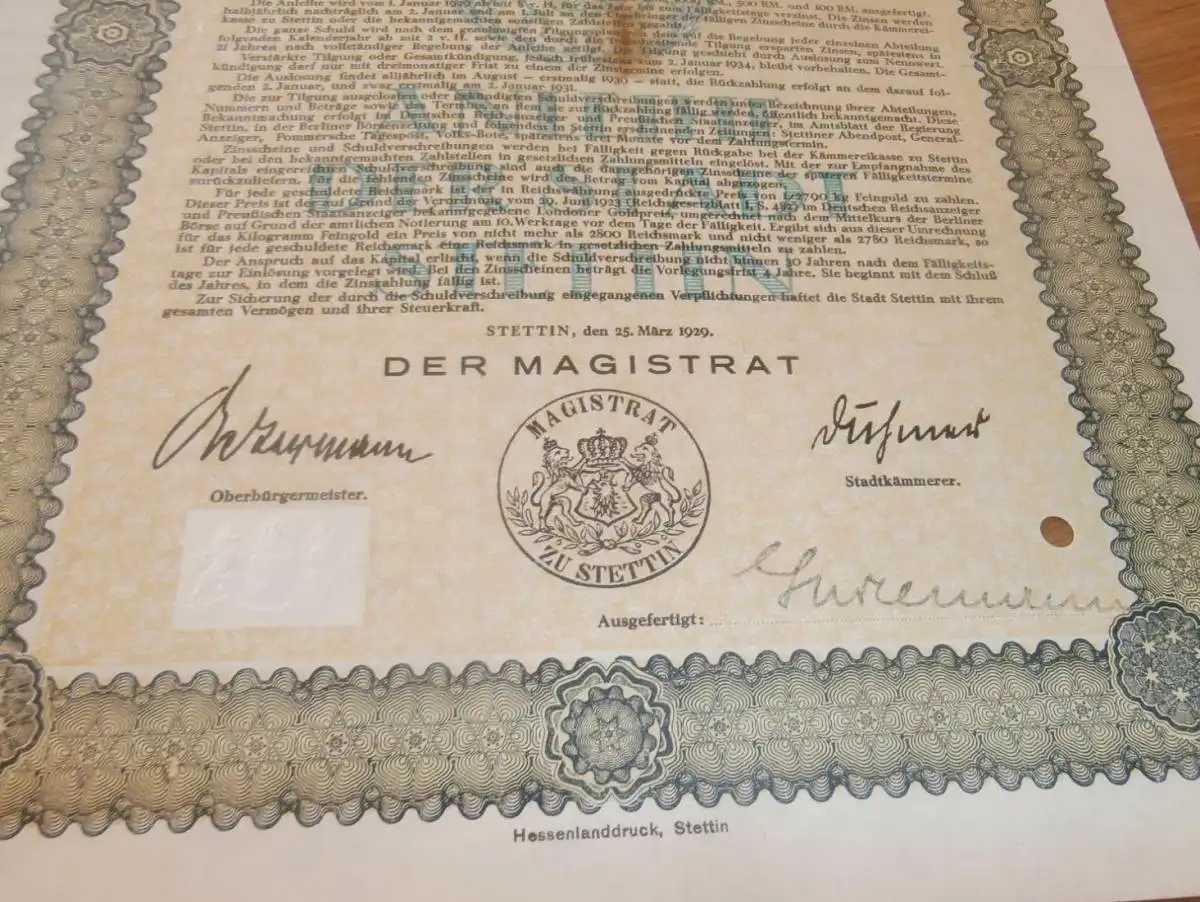 Die Anleihe wird vom 1. Januar 1929 ab mit 8 v. H. für das Jahr bis zum Fälligkeitstage verzinst. Die Zinsen werden
halbjährlich nachträglich am 2. Januar und am 1. Juli an den Überbringer der fälligen Zinsscheine durch die Kämmerei-
kasse zu Stettin oder die bekanntgemachten sonstigen Zahlstellen gezahlt.
Die ganze Schuld wird nach dem genehmigten Tilgungsplan von dem auf die Begebung jeder einzelnen Abteilung
folgenden Kalenderjahr ab mit 2 v. H. sowie den durch die fortschreitende Tilgung ersparten Zinsen, spätestens in
21 Jahren nach vollständiger Begebung der Anleihe getilgt. Die Tilgung geschieht durch Auslosung zum Nennwert.
Verstärkte Tilgung oder Gesamtkündigung, jedoch frühestens zum 2. Januar 1934, bleibt vorbehalten. Die Gesamt-
kündigung darf nur mit dreimonatiger Frist zu einem der Zinstermine erfolgen.
Die Auslosung findet alljährlich im August — erstmalig 1930 — statt, die Rückzahlung erfolgt an dem darauf fol-
genden 2. Januar, und zwar erstmalig am 2. Januar 1931.
Die zur Tilgung ausgelosten oder gekündigten Schuldverschreibungen werden unter Bezeichnung ihrer Abteilungen,
Nummern und Beträge sowie des Termins, an dem sie zur Rückzahlung fällig werden, öffentlich bekanntgemacht. Diese
Bekanntmachung erfolgt im Deutschen Reichsanzeiger und Preußischen Staatsanzeiger, im Amtsblatt der Regierung
Stettin, in der Berliner Börsenzeitung und folgenden in Stettin erscheinenden Zeitungen: Stettiner Abendpost, General-
Anzeiger, Pommersche Tagespost, Volks-Bote, spätestens drei Monate vor dem Zahlungstermin.
Zinsscheine und Schuldverschreibungen werden bei Fälligkeit gegen Rückgabe bei der Kämmereikasse zu Stettin
oder bei den bekanntgemachten Zahlstellen in gesetzlichen Zahlungsmitteln eingelöst. Mit der zur Empfangnahme des
Kapitals eingereichten Schuldverschreibung sind auch die dazugehörigen Zinsscheine der späteren Fälligkeitstermine
zurückzuliefern. Für die fehlenden Zinsscheine wird der Betrag vom Kapital abgezogen.
Für jede geschuldete Reichsmark ist der in Reichswährung ausgedrückte Preis von 1/2790 kg Feingold zu zahlen.
Dieser Preis ist der auf Grund der Verordnung vom 29. Juni 1923 (Reichsgesetzblatt I, S. 482) im Deutschen Reichsanzeiger
und Preußischen Staatsanzeiger bekanntgegebene Londoner Goldpreis, umgerechnet nach dem Mittelkurs der Berliner
Börse auf Grund der amtlichen Notierung am 10. Werktage vor dem Tage der Fälligkeit. Ergibt sich aus dieser Umrechnung
für das Kilogramm Feingold ein Preis von nicht mehr als 2800 Reichsmark und nicht weniger als 2780 Reichsmark, so
ist für jede geschuldete Reichsmark eine Reichsmark in gesetzlichen Zahlungsmitteln zu zahlen.
Der Anspruch auf das Kapital erlischt, wenn die Schuldverschreibung nicht binnen 30 Jahren nach dem Fälligkeits-
tage zur Einlösung vorgelegt wird. Bei den Zinsscheinen beträgt die Vorlegungsfrist 4 Jahre. Sie beginnt mit dem Schluß
des Jahres, in dem die Zinszahlung fällig ist.
Zur Sicherung der durch die Schuldverschreibung eingegangenen Verpflichtungen haftet die Stadt Stettin mit ihrem
gesamten Vermögen und ihrer Steuerkraft.
STETTIN, den 25. März 1929.
DER MAGISTRAT
Ackermann
Oberbürgermeister.
MAGISTRAT
ZU STETTIN
Duhmer
Stadtkämmerer.
Ausgefertigt:
Hessenlanddruck, Stettin